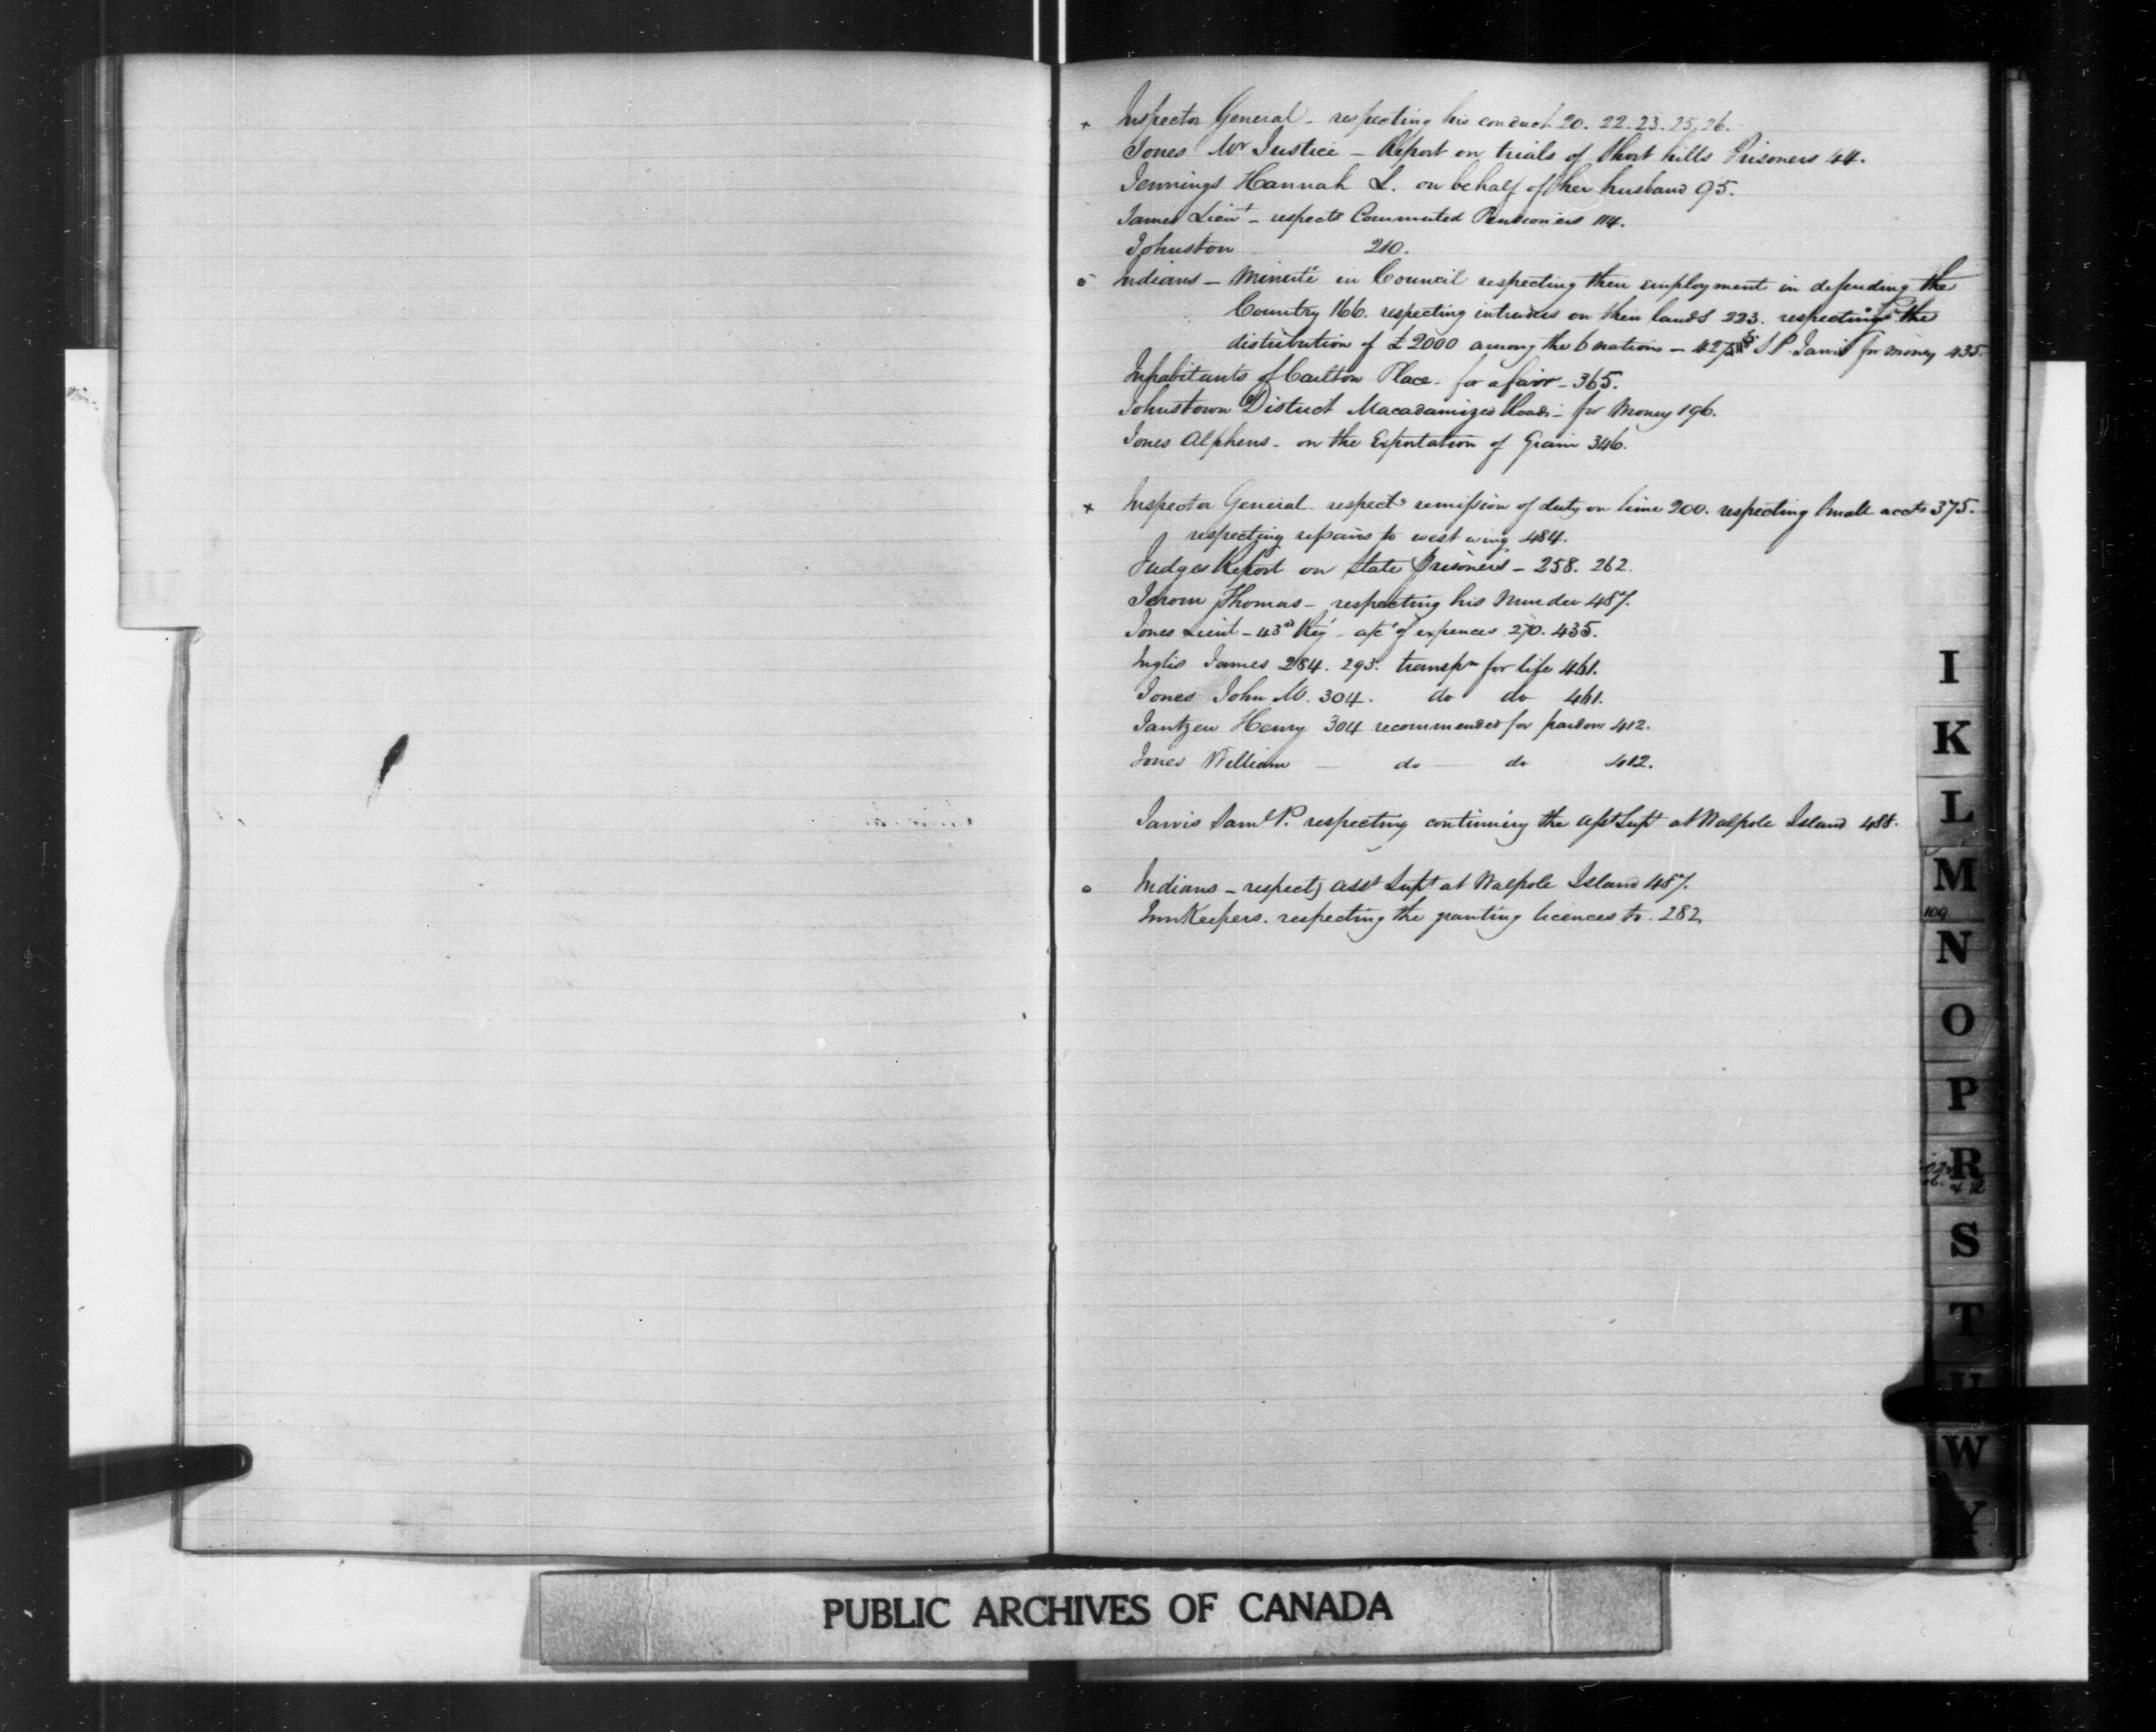 + Inspector General - respecting his conduct 20. 22. 23. 25, 26.
Jones Mr Justice - Report on trials of Short hills Prisoners 44.
Jennings Hannah L. on behalf of her husband 95.
James Lieut - respectg Commuted Pensioners 114.
Johnston 210.
o Indians - Minute in Council respecting their employment in defending the
Country 166. respecting intruders on their lands 223. respecting the
distribution of £2000 among the 6 nations - 427 S P Jarvis for money 435
Inhabitants of Carlton Place - for a fair - 365.
Johnstown District Macadamized Roads - for Money 196.
Jones Alpheus - on the Exportation of Grain 346.
+ Inspector General respectg remission of duty on lime 200. respecting small accts 375.
respecting repairs to west wing 484.
Judges Report on State Prisoners - 258. 262.
Jerom Thomas - respecting his Murder 487.
Jones Lieut - 43rd Regt - a/c of expences 270. 435.
Inglis James 284. 293. transpn for life 461.
Jones John M. 304. do do 461.
Jantzen Henry 304 recommended for pardon 412.
Jones William - do - do 412.
Jarvis Saml P. respecting continuing the Asst Supt at Walpole Island 488.
o Indians - respectg Asst Supt at Walpole Island 487.
Inn Keepers. respecting the granting licences to. 282
I
K
L
M
109
N
O
P
R
S
T
U
W
Y
PUBLIC ARCHIVES OF CANADA